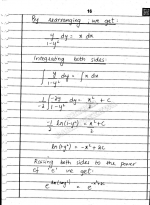 16
By rearranging, we get:
y/(1-y²) dy = x dx
Integrating both sides:
∫ y/(1-y²) dy = ∫ x dx
-1/2 ∫ -2y/(1-y²) dy = x²/2 + C
-1/2 ln(1-y²) = x²/2 + C
ln(1-y²) = -x² + 2C
Raising both sides to the power
of 'e' we get:
e^(ln(1-y²)) = e^(-x²+2C)